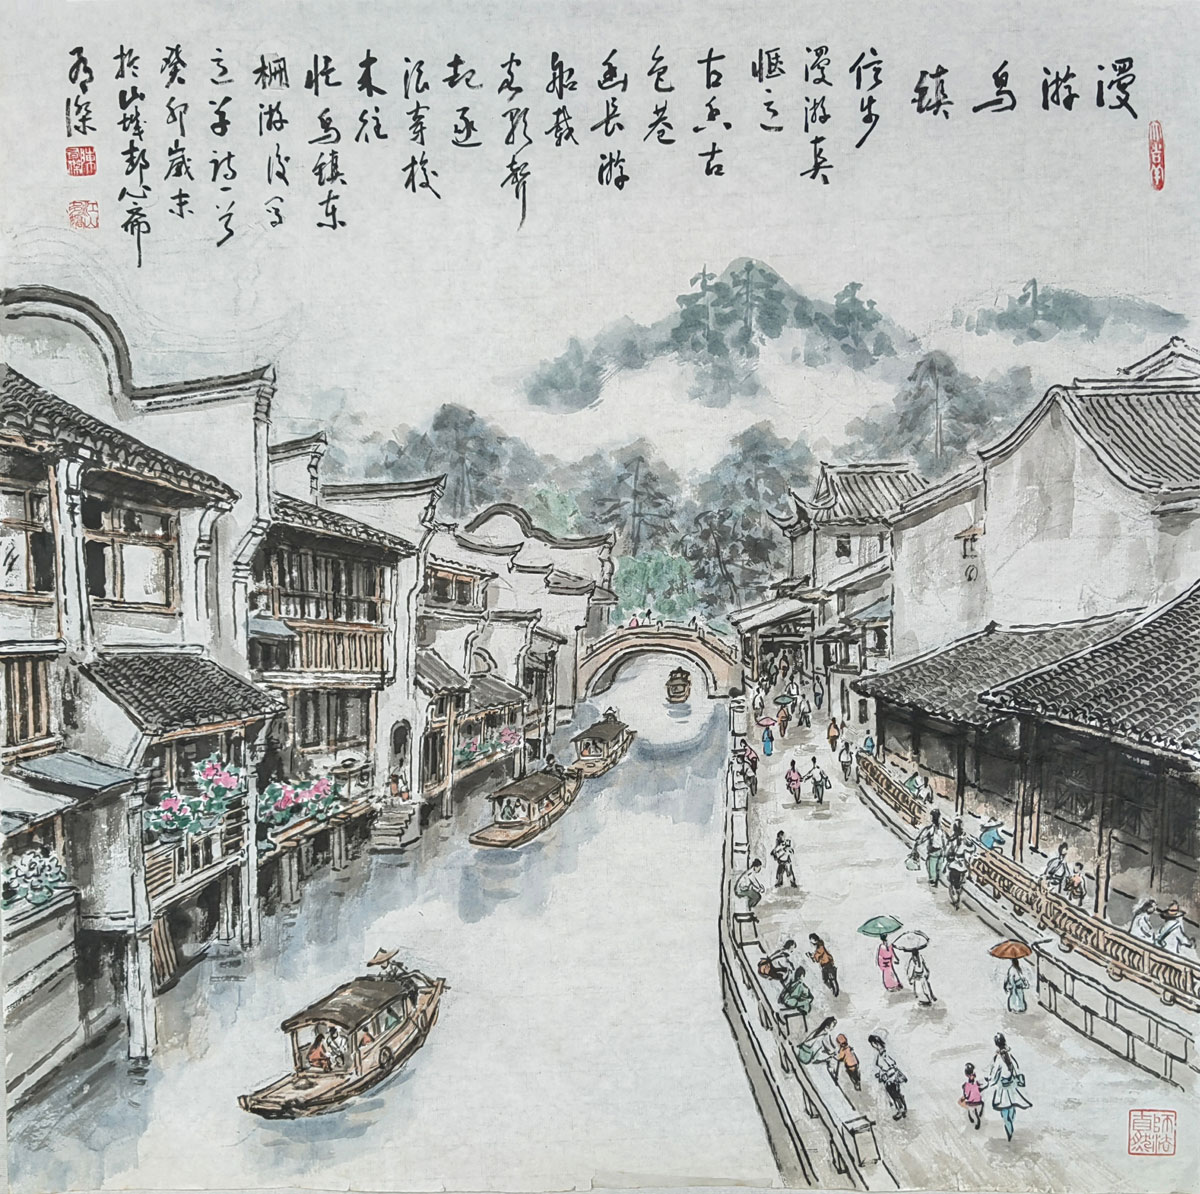 漫游乌镇
信步
漫游真
惬意
古香古
色巷
幽长游
船载
客歌声
起逐
浪穿梭
来往
忙乌镇东
栅游后写
草诗一首
癸卯岁末
於山城心斋